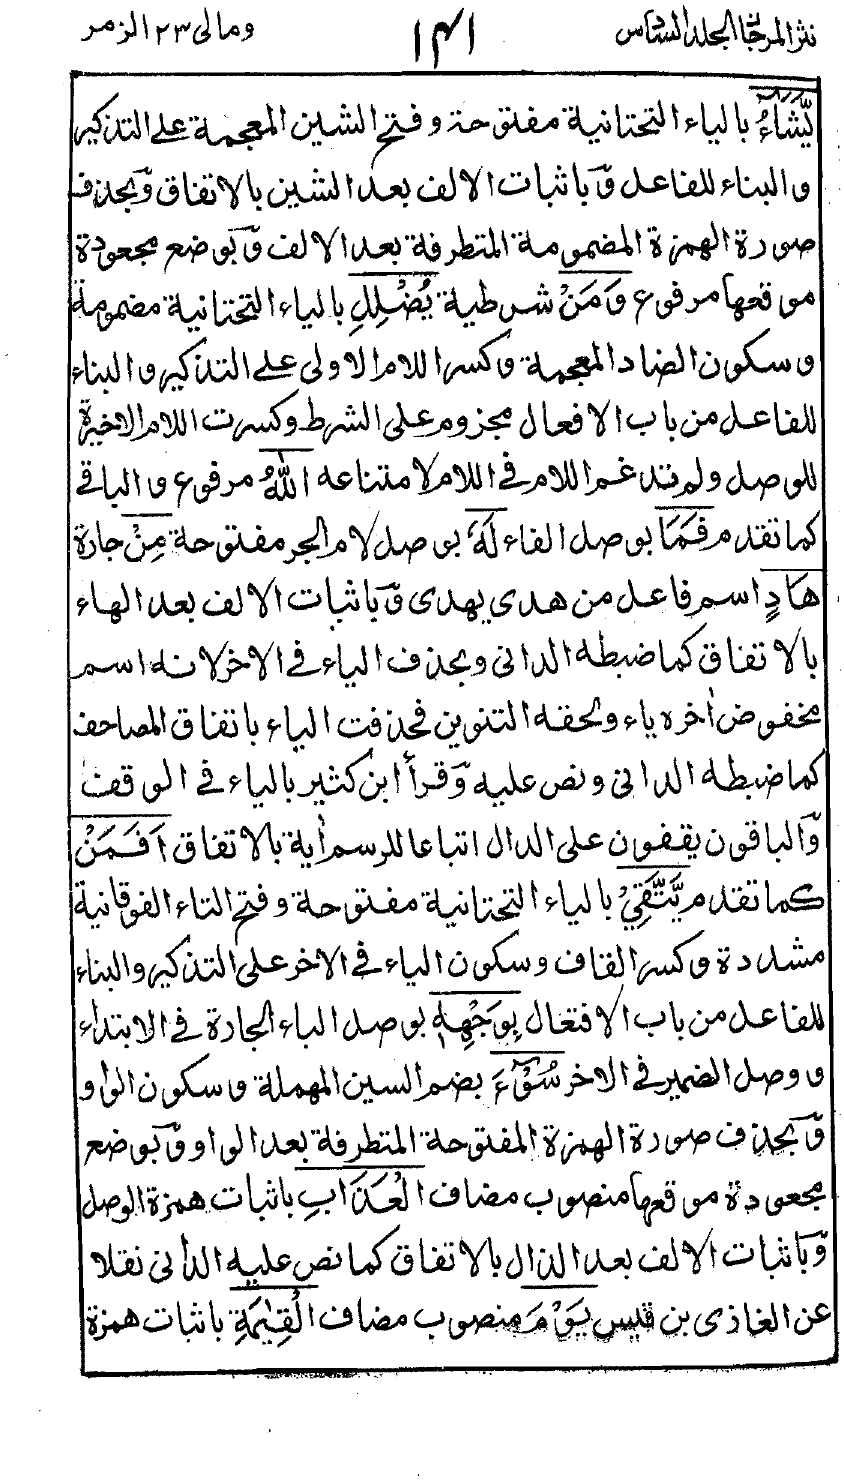 نثر المرجان الجلد السادس ١٤١ ومالى ٢٣ الزمر
يَّشَآءُ بالياء التحتانية مفتوحة وفتح الشين المعجمة على التذكير
والبناء للفاعل وَباثبات الالف بعد الشين بالاتفاق وَبحذف
صورة الهمزة المضمومة المتطرفة بعد الالف وَبوضع مجعودة
موقعها مرفوع وَمَنْ شرطية يُضْلِلِ بالياء التحتانية مضمومة
وسكون الضاد المعجمة وكسر اللام الاولى على التذكير والبناء
للفاعل من باب الافعال مجزوم على الشرط وكسرت اللام الاخيرة
للوصل ولم تدغم اللام فى اللام لامتناعه اللّٰهُ مرفوع والباقي
كما تقدم فَمَا بوصل الفاء لَهٗ بوصل لام الجر مفتوحة مِنْ جارة
هَادٍ اسم فاعل من هدى يهدى وَباثبات الالف بعد الهاء
بالاتفاق كما ضبطه الدانى وبحذف الياء فى الاخر لانه اسم
مخفوض اٰخره ياء ولحقه التنوين فحذفت الياء باتفاق المصاحف
كما ضبطه الدانى ونص عليه وَقرأ ابن كثير بالياء فى الوقف
وَالباقون يقفون على الدال اتباعا للرسم اٰية بالاتفاق اَفَمَنْ
كما تقدم يَّتَّقِيْ بالياء التحتانية مفتوحة وفتح التاء الفوقانية
مشددة وكسر القاف وسكون الياء فى الاخر على التذكير والبناء
للفاعل من باب الافتعال بِوَجْهِهٖ بوصل الباء الجارة فى الابتداء
ووصل الضمير فى الاخر سُوْٓءَ بضم السين المهملة وسكون الواو
وَبحذف صورة الهمزة المفتوحة المتطرفة بعد الواو وَبوضع
مجعودة موقعها منصوب مضاف الْعَذَابِ باثبات همزة الوصل
وَباثبات الالف بعد الذال بالاتفاق كما نص عليه الدانى نقلا
عن الغازى بن قيس يَوْمَ منصوب مضاف الْقِيٰمَةِ باثبات همزة